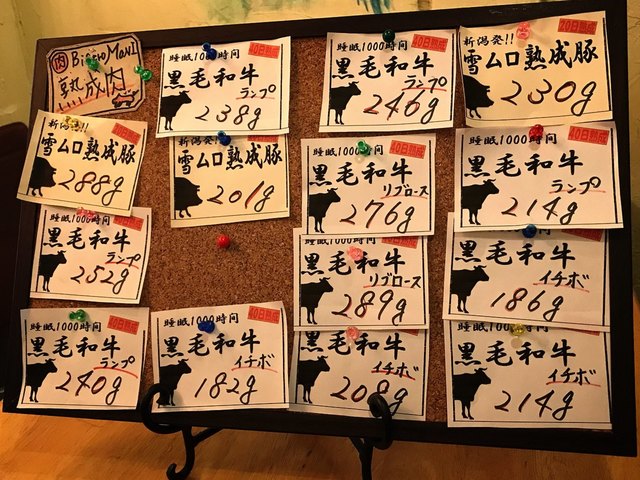 肉 Bistro Man
熟成肉
睡眠1000時間
40日熟成
黒毛和牛
ランプ
238g
睡眠1000時間
40日熟成
黒毛和牛
ランプ
246g
新潟発!!
20日熟成
雪ムロ熟成豚
230g
新潟発!!
雪ムロ熟成豚
288g
新潟発!!
雪ムロ熟成豚
201g
睡眠1000時間
40日熟成
黒毛和牛
リブロース
276g
睡眠1000時間
40日熟成
黒毛和牛
ランプ
214g
睡眠1000時間
黒毛和牛
ランプ
252g
睡眠1000時間
黒毛和牛
リブロース
289g
睡眠1000時間
黒毛和牛
イチボ
186g
睡眠1000時間
40日熟成
黒毛和牛
ランプ
240g
睡眠1000時間
40日熟成
黒毛和牛
イチボ
182g
睡眠1000時間
黒毛和牛
イチボ
208g
睡眠1000時間
黒毛和牛
イチボ
214g